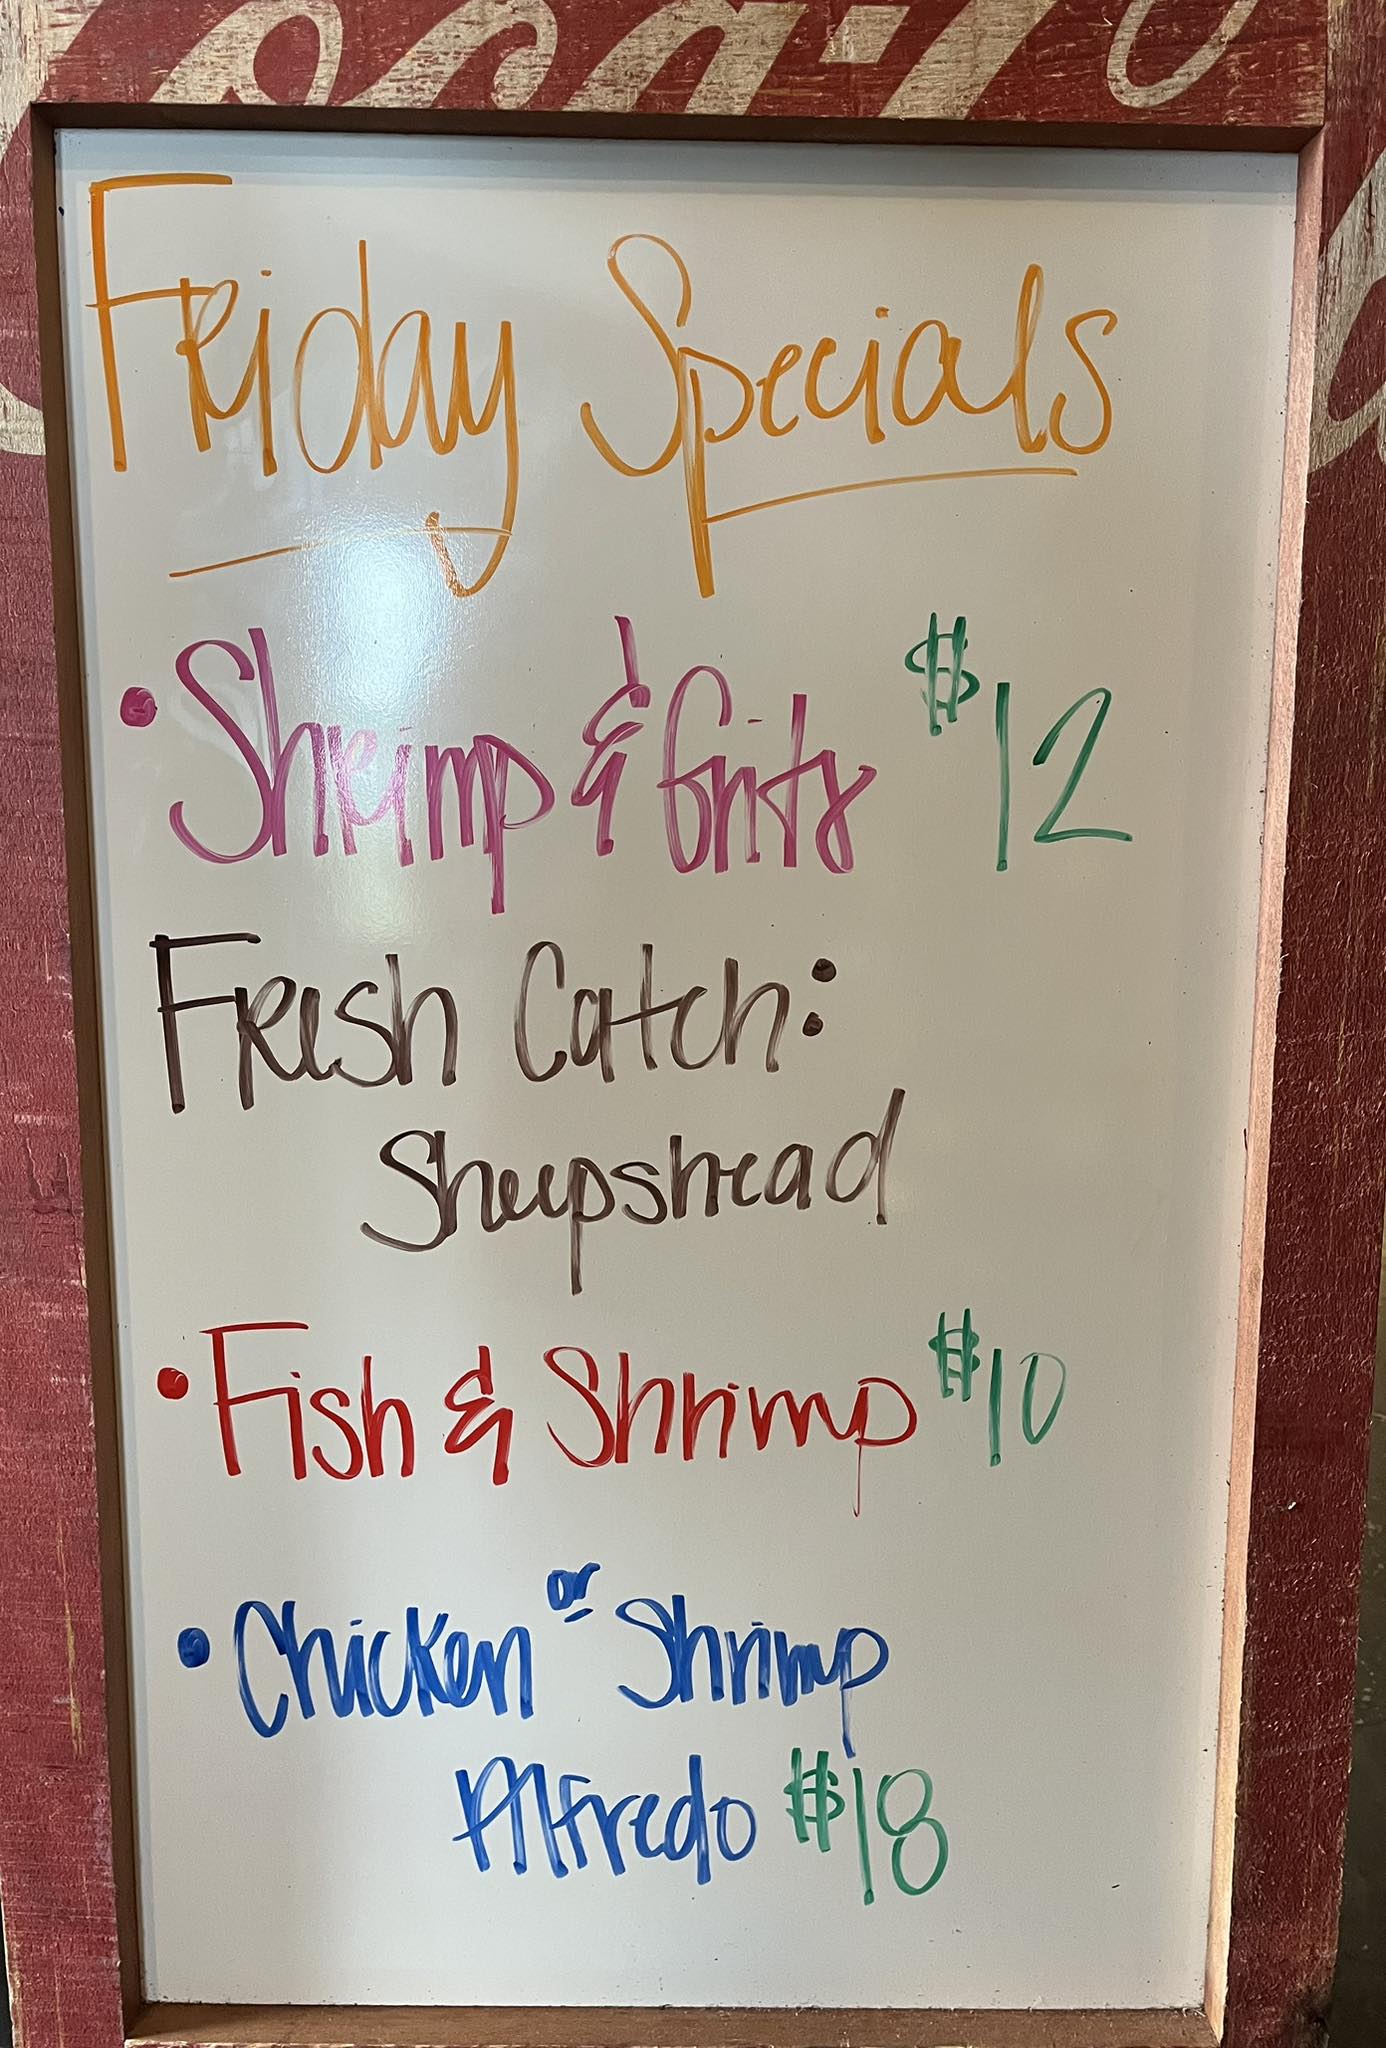 Friday Specials
• Shrimp & Grits $12
Fresh Catch:
Sheepshead
• Fish & Shrimp $10
• Chicken or Shrimp
Alfredo $18